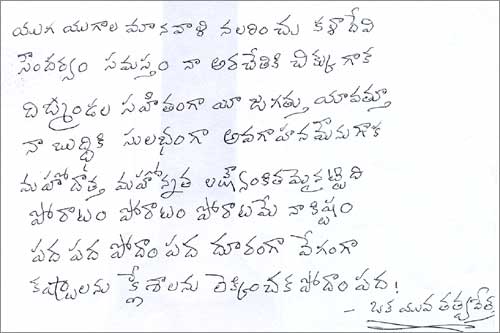 యుగ యుగాల మానవాళి నలరించు కళాదేవి
సౌందర్యం సమస్తం నా అరచేతికి చిక్కు గాక
దిఙ్మండల సహితంగా యీ జగత్తు యావత్తూ
నా బుద్ధికి సులభంగా అవగాహనమౌను గాక
మహోదాత్త మహోన్నత లక్ష్యాంకితమైనట్టిది
పోరాటం పోరాటం పోరాటమే నా కిష్టం
పద పద పోదాం పద దూరంగా వేగంగా
కష్టాలను క్లేశాలను లెక్కించక పోదాం పద!
- ఒక యువ తత్వవేత్త